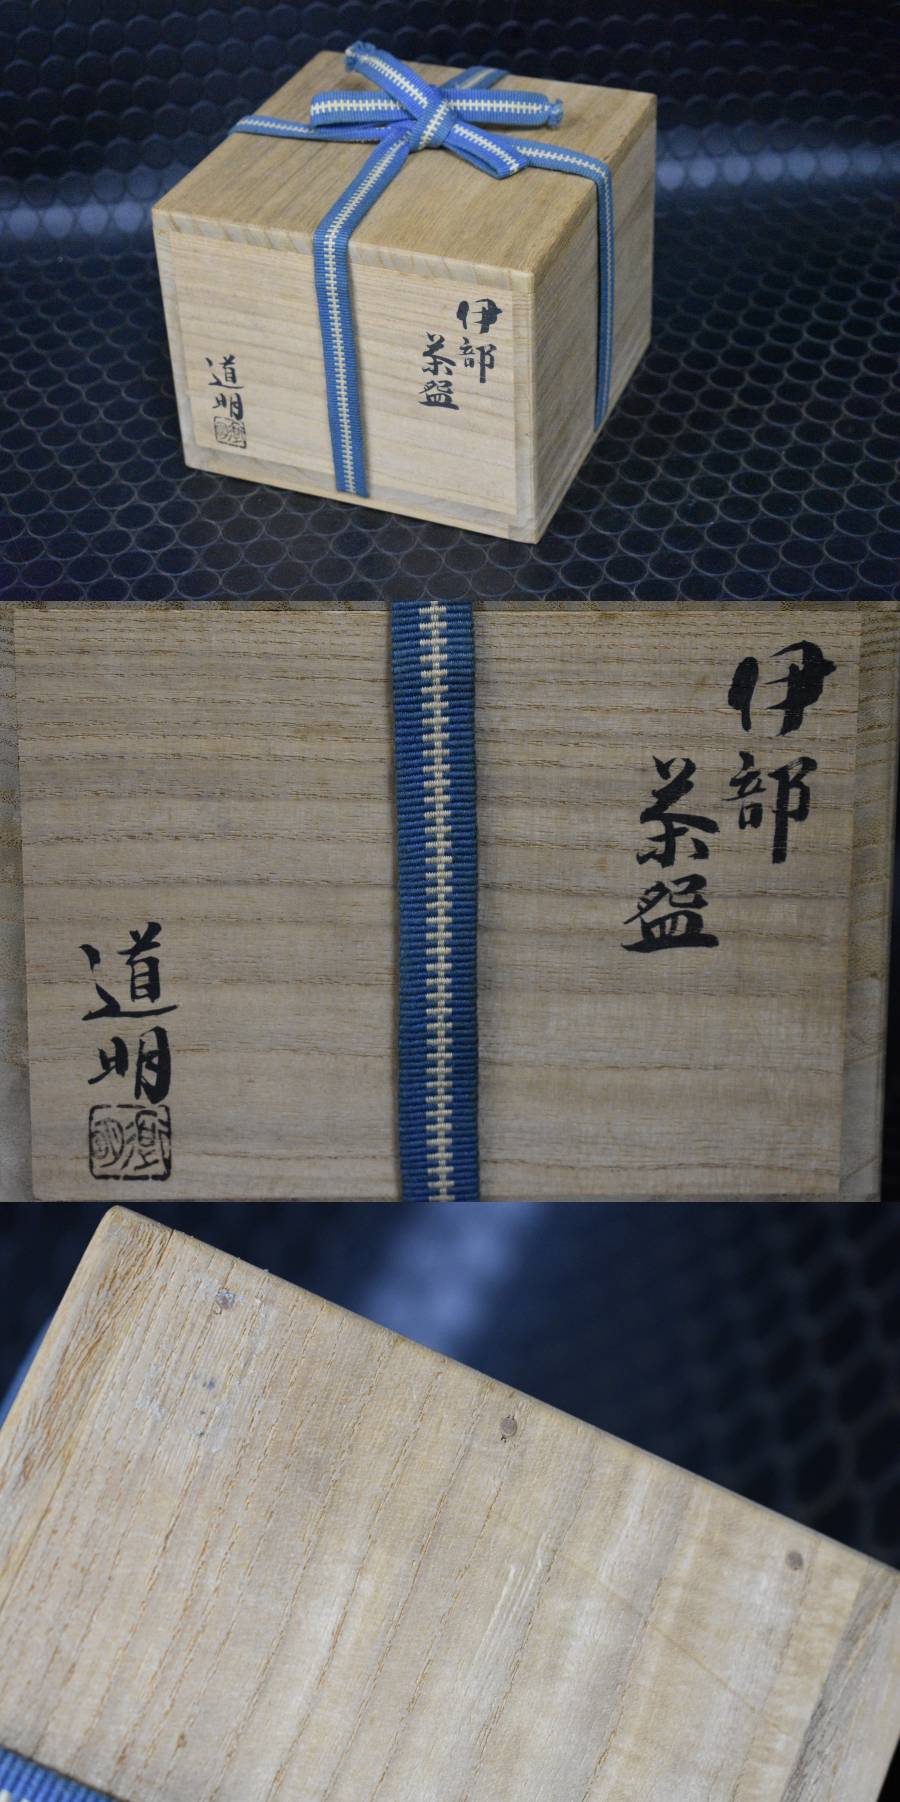 伊部
茶盌
道明
伊部
茶盌
道明